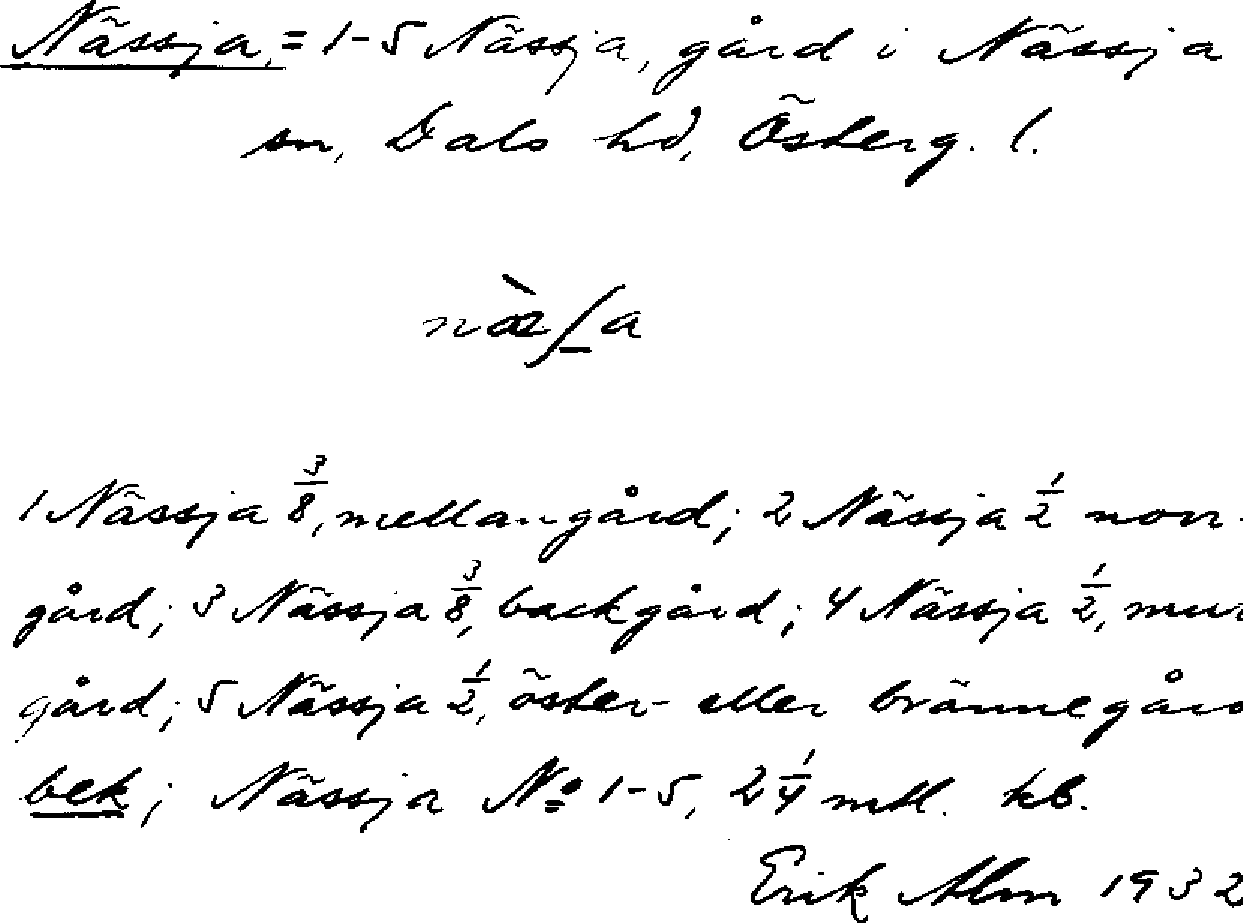 Nässja, = 1-5 Nässja, gård i Nässja
sn, Dals hd, Österg. l.
næ̀ʃ_a
1 Nässja 3/8, mellangård; 2 Nässja 1/2 norr-
gård; 3 Nässja 3/8, backgård; 4 Nässja 1/2, mur
gård; 5 Nässja 1/2, öster- eller brännegård
bek; Nässja No 1-5, 2 1/4 mtl. kb.
Erik Alm 1932